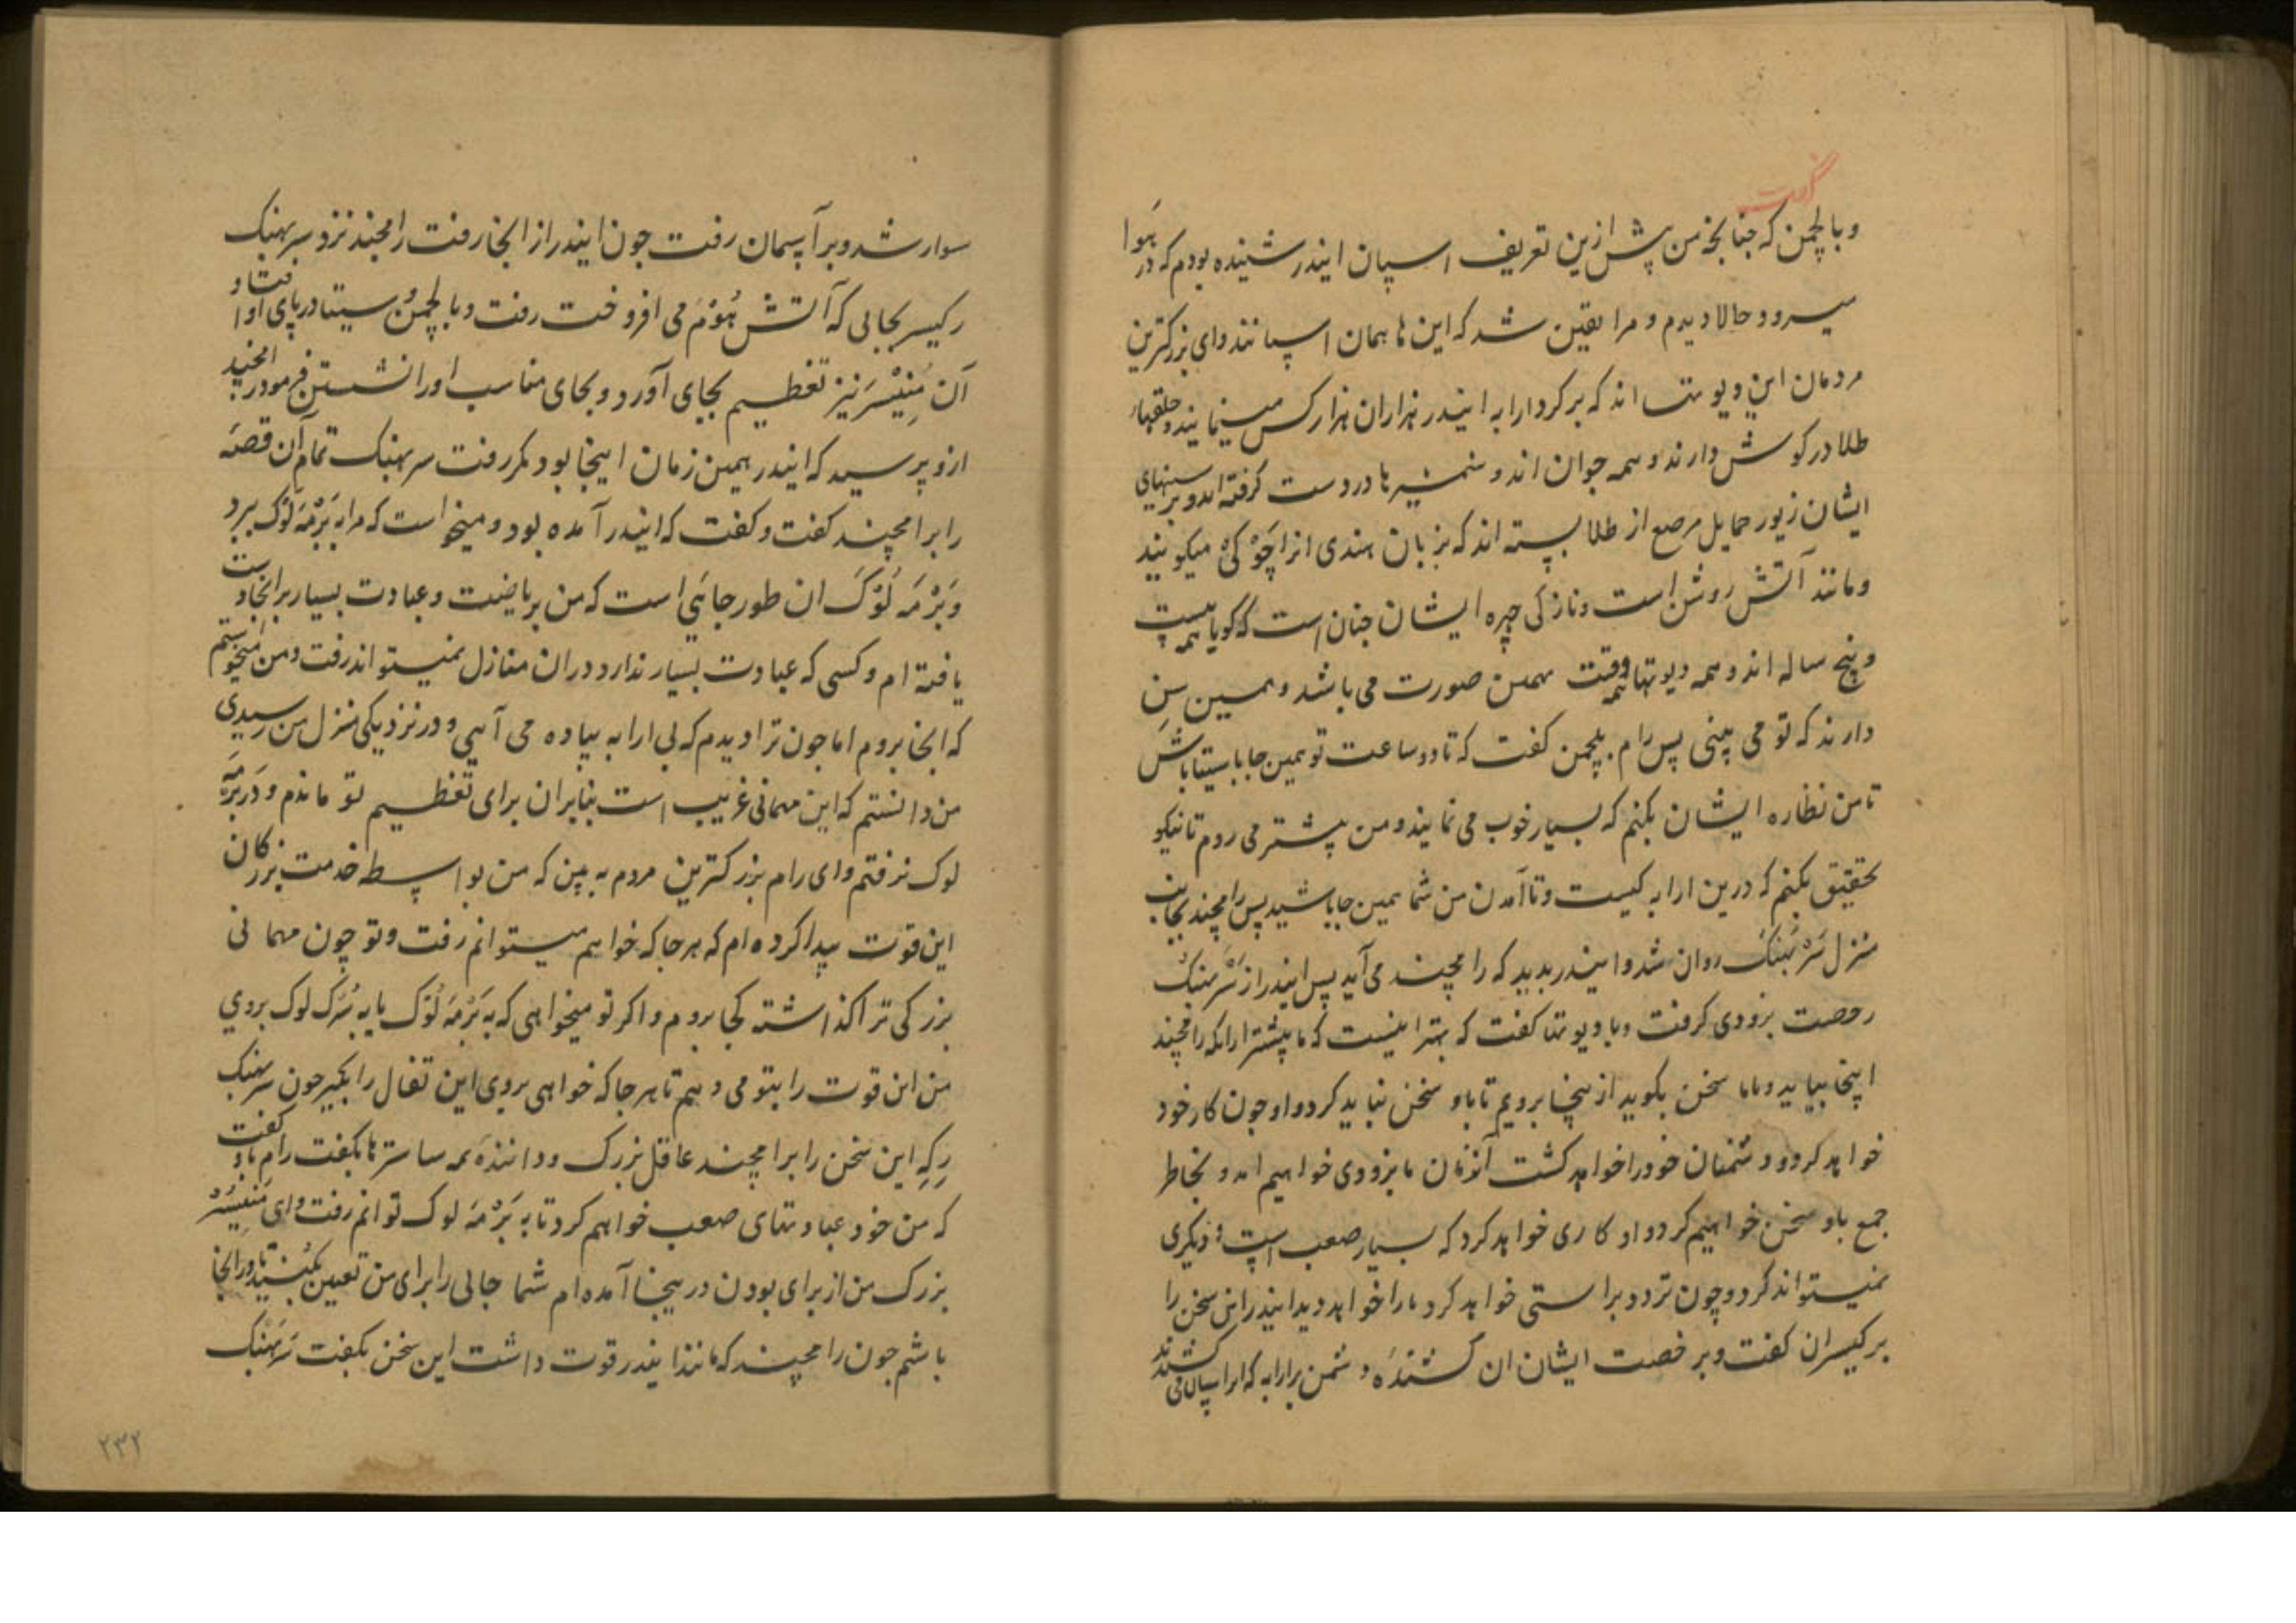 گفت
و با لچمن که چنانچه من پیش ازین تعریف اسپان ایندر شنیده بودم که در هوا
میرود حالا دیدم و مرا یقین شد که این ها همان اسپانند و ای بزرکترین
مردمان این دیوتها اند که بر کرد ارابه ایندر هزاران هزار کس مینمایند و حلقهاء
طلا در کوش دارند و همه جوان اند و شمشیرها در دست کرفته اند و بر سینهای
ایشان زیور حمایل مرصع از طلا بسته اند که بزبان هندی انرا چَوْکی میکویند
و مانند آتش روشن است و نازکی چهره ایشان چنان است که کویا همه بیست
و پنج ساله اند و همه دیوتها همه وقت بهمین صورت می باشد و همین سِن
دارند که تو می بینی پس رام بلچمن کفت که تا دو ساعت تو همین جا با سیتا باش
تا من نظاره ایشان بکنم که بسیار خوب می نمایند و من پیشتر می روم تا نیکو
تحقیق بکنم که درین ارابه کیست و تا آمدن من شما همین جا باشید پس رامچند بجانب
منزل سَرْبَهنک روان شد و ایندر بدید که رامچند می آید پس ایندر از سَرْبهنک
رخصت بزودی کرفت و با دیوتها کفت که بهتر اینست که ما پیشتر ازانکه رامچند
اینجا بیاید و باما سخن بکوید ازینجا برویم تا باو سخن نباید کرد و او چون کار خود
خواهد کرد و دشمنان خود را خواهد کشت آنزمان ما بزودی خواهیم امد و بخاطر
جمع باو سخن خواهیم کرد و او کاری خواهد کرد که بسیار صعب است و دیکری
نمیتواند کرد و چون تردد براستی خواهد کرد مارا خواهد دید ایندر این سخن را
برکیسران کفت و برخصت ایشان ان کشنده دشمن بر ارابه که انرا اسپان می کشیدند
سوار شد و بر آسمان رفت چون ایندر از انجا رفت رامچند نزد سربهنک
رکیسر بجایی که آتش هُوْم می افروخت رفت و با لچمن و سیتا در پای او افتاد و
آن مُنِیْسَر نیز تعظیم بجای آورد و بجای مناسب او را نشستن فرمود رامچند
ازو پرسید که ایندر همین زمان اینجا بود مکر رفت سربهنک تمام آن قصه
را برامچند کفت و کفت که ایندر آمده بود و میخواست که مرا به بَرْمَه لَوْک ببرد
و بَرْمَه لَوْک ان طور جائی است که من بریاضت و عبادت بسیار بر انجا دست
یافته ام و کسی که عبادت بسیار ندارد دران منازل نمیتواند رفت و من میخواستم
که انجا بروم اما چون ترا دیدم که بی ارابه پیاده می آیی و در نزدیکی منزل من رسیدی
من دانستم که این مهمانی غریب است بنابران برای تعظیم تو ماندم و در بَرْمَه
لوک نرفتم و ای رام بزرکترین مردم به بین که من بواسطه خدمت بزرکان
این قوت پیدا کرده ام که هر جا که خواهم میتوانم رفت و تو چون مهمانی
بزرکی ترا کذاشته کجا بروم و اکر تو میخواهی که به بَرْمَه لَوْک یا به سُرَک لوک بروی
من این قوت را بتو می دهم تا هر جا که خواهی بروی این تفال را بکیر چون سربهنک
رکه این سخن را برامچند عاقل بزرک و دانندهٔ همه ساسترها بکفت رام باو کفت
که من خود عبادتهای صعب خواهم کرد تا به بَرْمَه لوک توانم رفت و ای مُنِیْسَر
بزرک من از برای بودن درینجا آمده ام شما جائی را برای من تعیین بکنید تا در انجا
باشم چون رامچند که مانند ایندر قوت داشت این سخن بکفت سَربَهنک
۲۳۲